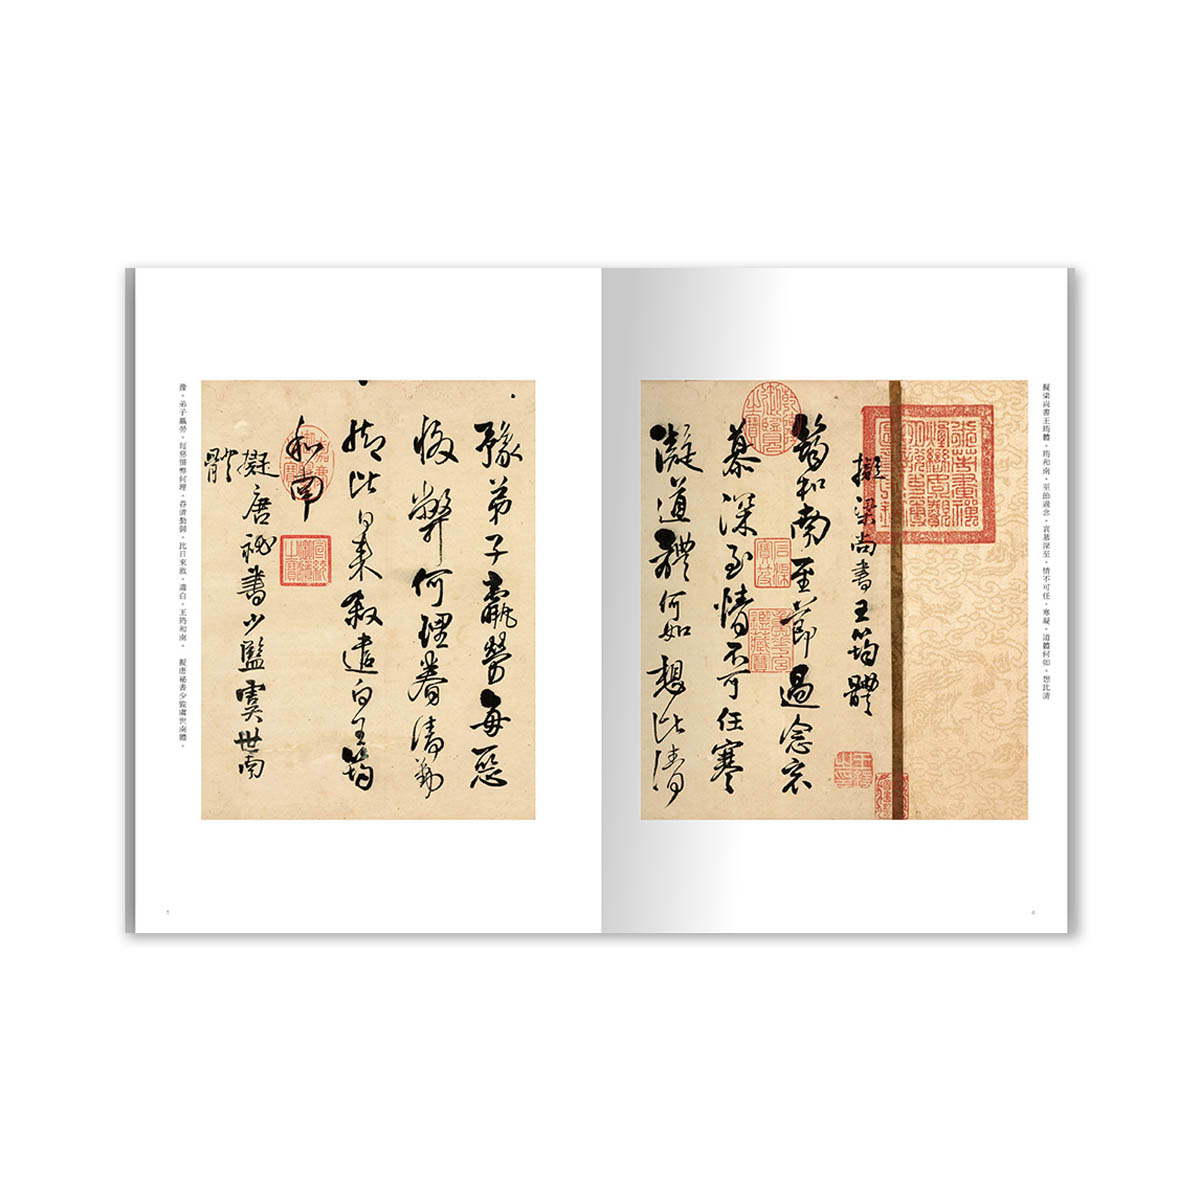 擬梁尚書王筠體。筠和南。至節過念。哀慕深至。情不可任。寒凝。道體何如。想比清
擬梁尚書王筠體
筠和南至節過念哀
慕深至情不可任寒
凝道體何如想比清
石渠寶笈
豫弟子羸勞每惡
惛弊何理眷清勤
御比日來敘遣白王筠
和南
嘉慶御覽之寶
宣統御覽之寶
擬唐秘書少監虞世南
體
豫。弟子羸勞。每惡惛弊何理。眷清勤御。比日來敘。遣白。王筠和南。 擬唐秘書少監虞世南體。